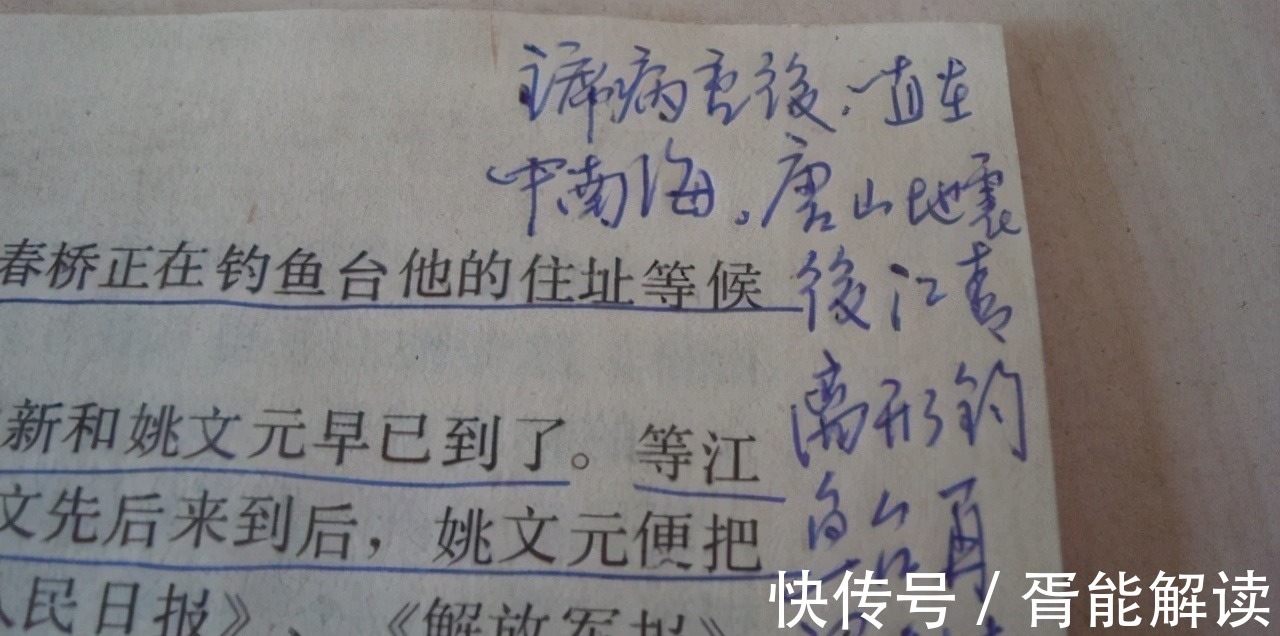 主席病重後，一直在
中南海。唐山地震
春桥正在钓鱼台他的住址等候
後江青
新和姚文元早已到了。等江
离开钓
文先后来到后，姚文元便把
鱼台再
人民日报》、《解放军报》
快传号 / 胥能解读